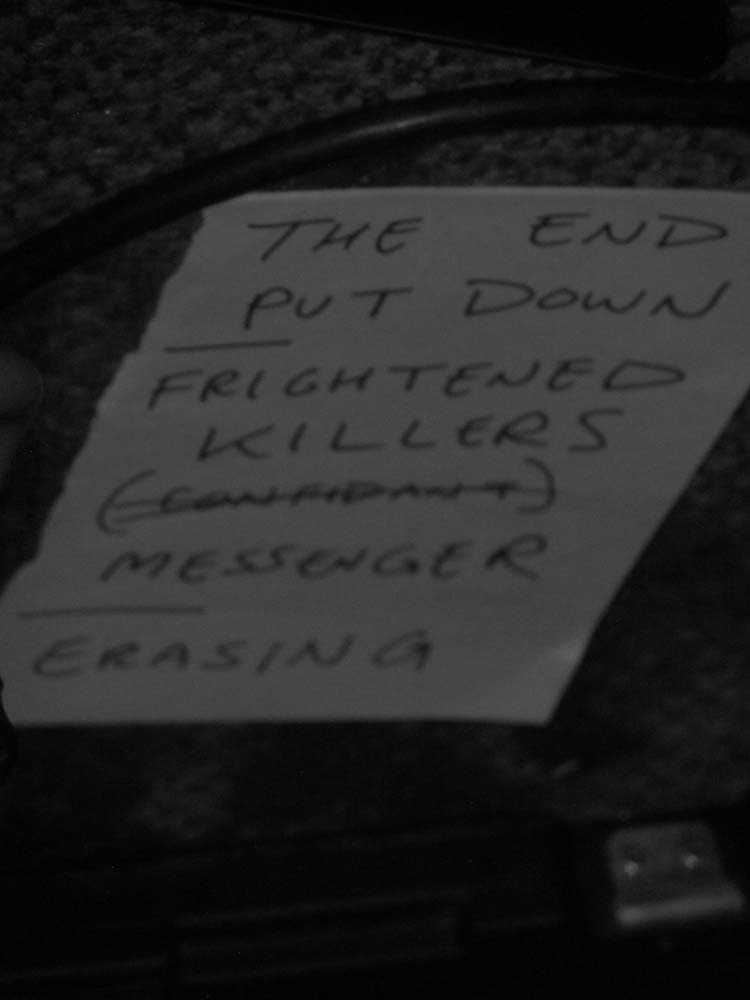 THE END
PUT DOWN
FRIGHTENED
KILLERS
(CONFIDANT)
MESSENGER
ERASING